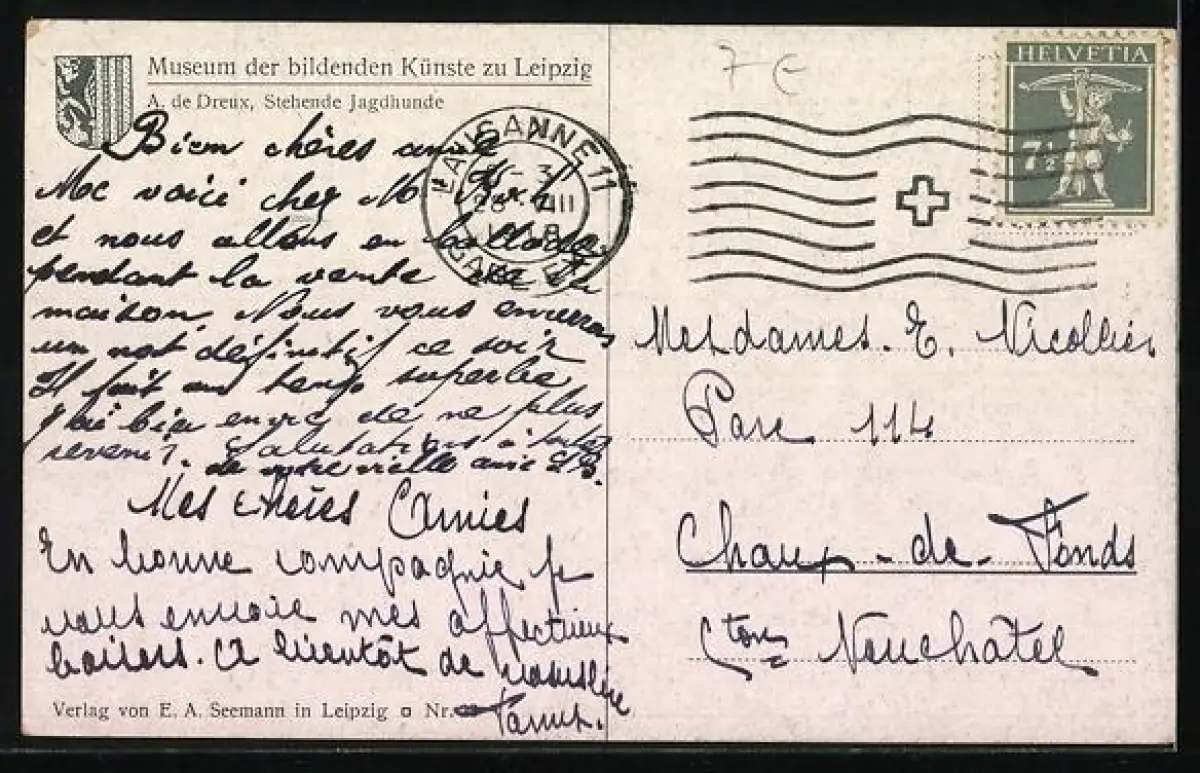 Museum der bildenden Künste zu Leipzig
A. de Dreux, Stehende Jagdhunde
Bien chères amies
Me voici chez M
et nous allons en
pendant la vente de la
maison. Nous vous enverrons
un mot définitif ce soir
Il fait un temps superbe
J'ai bien envie de ne plus
revenir. Salutations à toutes
de votre vieille amie
Mes chères Amies
En bonne compagnie je
vous envoie mes affectueux
baisers. A bientôt de
Verlag von E. A. Seemann in Leipzig Nr.
LAUSANNE 11
GARE
7 €
HELVETIA
7½
Mesdames. E. Nicollier
Parc 114
Chaux-de-Fonds
Cton Neuchâtel